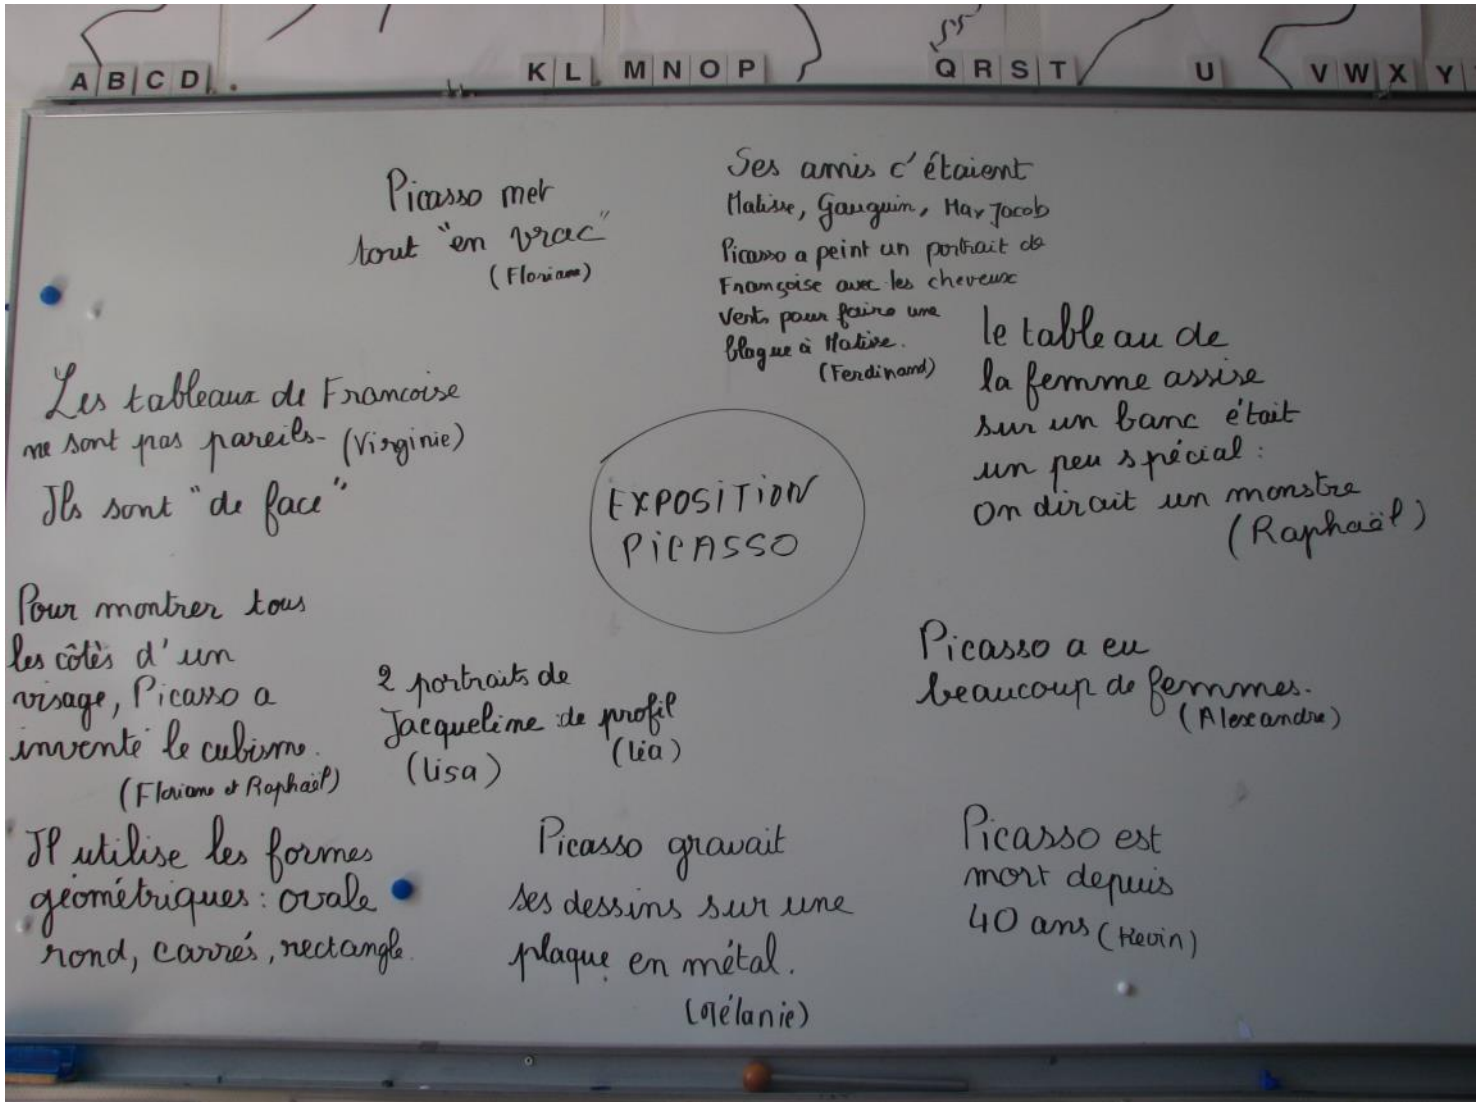 A B C D K L M N O P Q R S T U V W X Y
Picasso met
tout "en vrac"
(Floriane)
Ses amis c'étaient
Matisse, Gauguin, Max Jacob
Picasso a peint un portrait de
Françoise avec les cheveux
verts pour faire une
blague à Matisse.
(Ferdinand)
le tableau de
la femme assise
sur un banc était
un peu spécial :
on dirait un monstre
(Raphaël)
Les tableaux de Francoise
ne sont pas pareils- (Virginie)
Ils sont "de face"
EXPOSITION
PICASSO
Pour montrer tous
les côtés d'un
visage, Picasso a
inventé le cubisme.
(Floriane et Raphaël)
2 portraits de
Jacqueline de profil
(Lisa) (Léa)
Picasso a eu
beaucoup de femmes.
(Alexandre)
Il utilise les formes
géométriques : ovale
rond, carrés, rectangle.
Picasso gravait
ses dessins sur une
plaque en métal.
(Mélanie)
Picasso est
mort depuis
40 ans (Kevin)